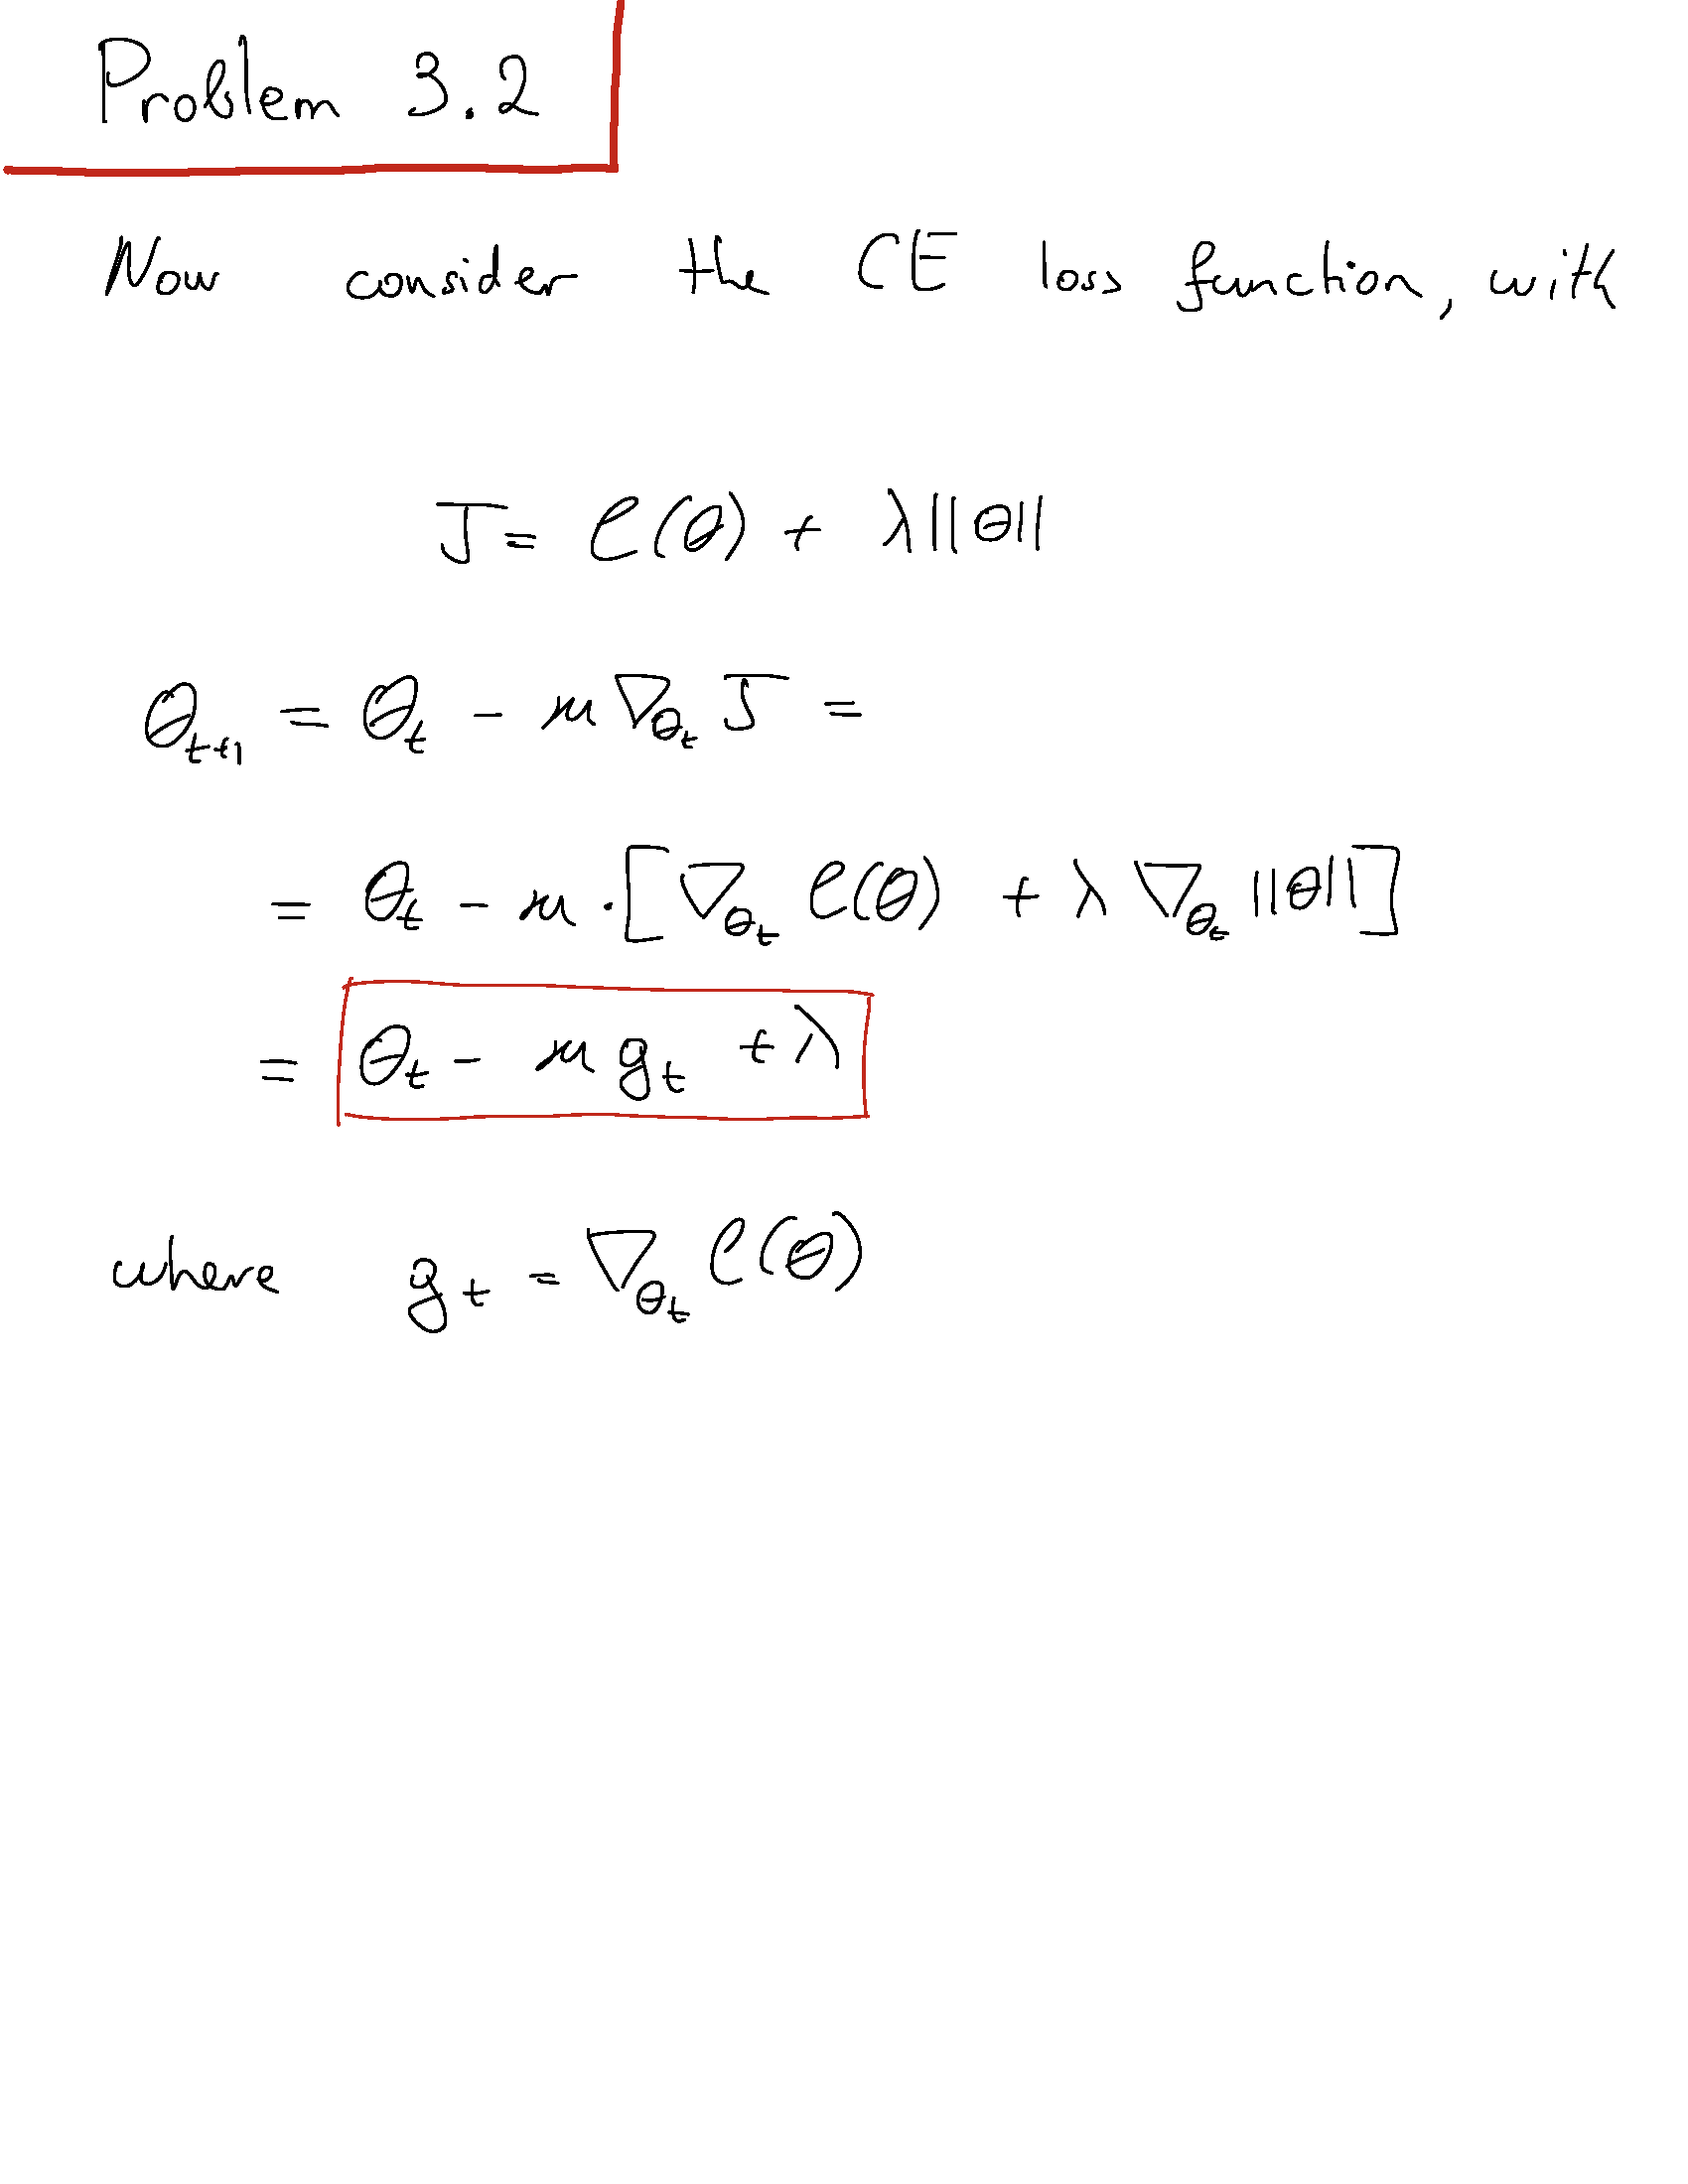 Problem 3.2
Now consider the CE loss function, with
J = ℓ(θ) + λ||θ||
θ_{t+1} = θ_t - μ ∇_{θ_t} J =
= θ_t - μ · [∇_{θ_t} ℓ(θ) + λ ∇_{θ_t} ||θ||]
= θ_t - μ g_t + λ
where g_t = ∇_{θ_t} ℓ(θ)